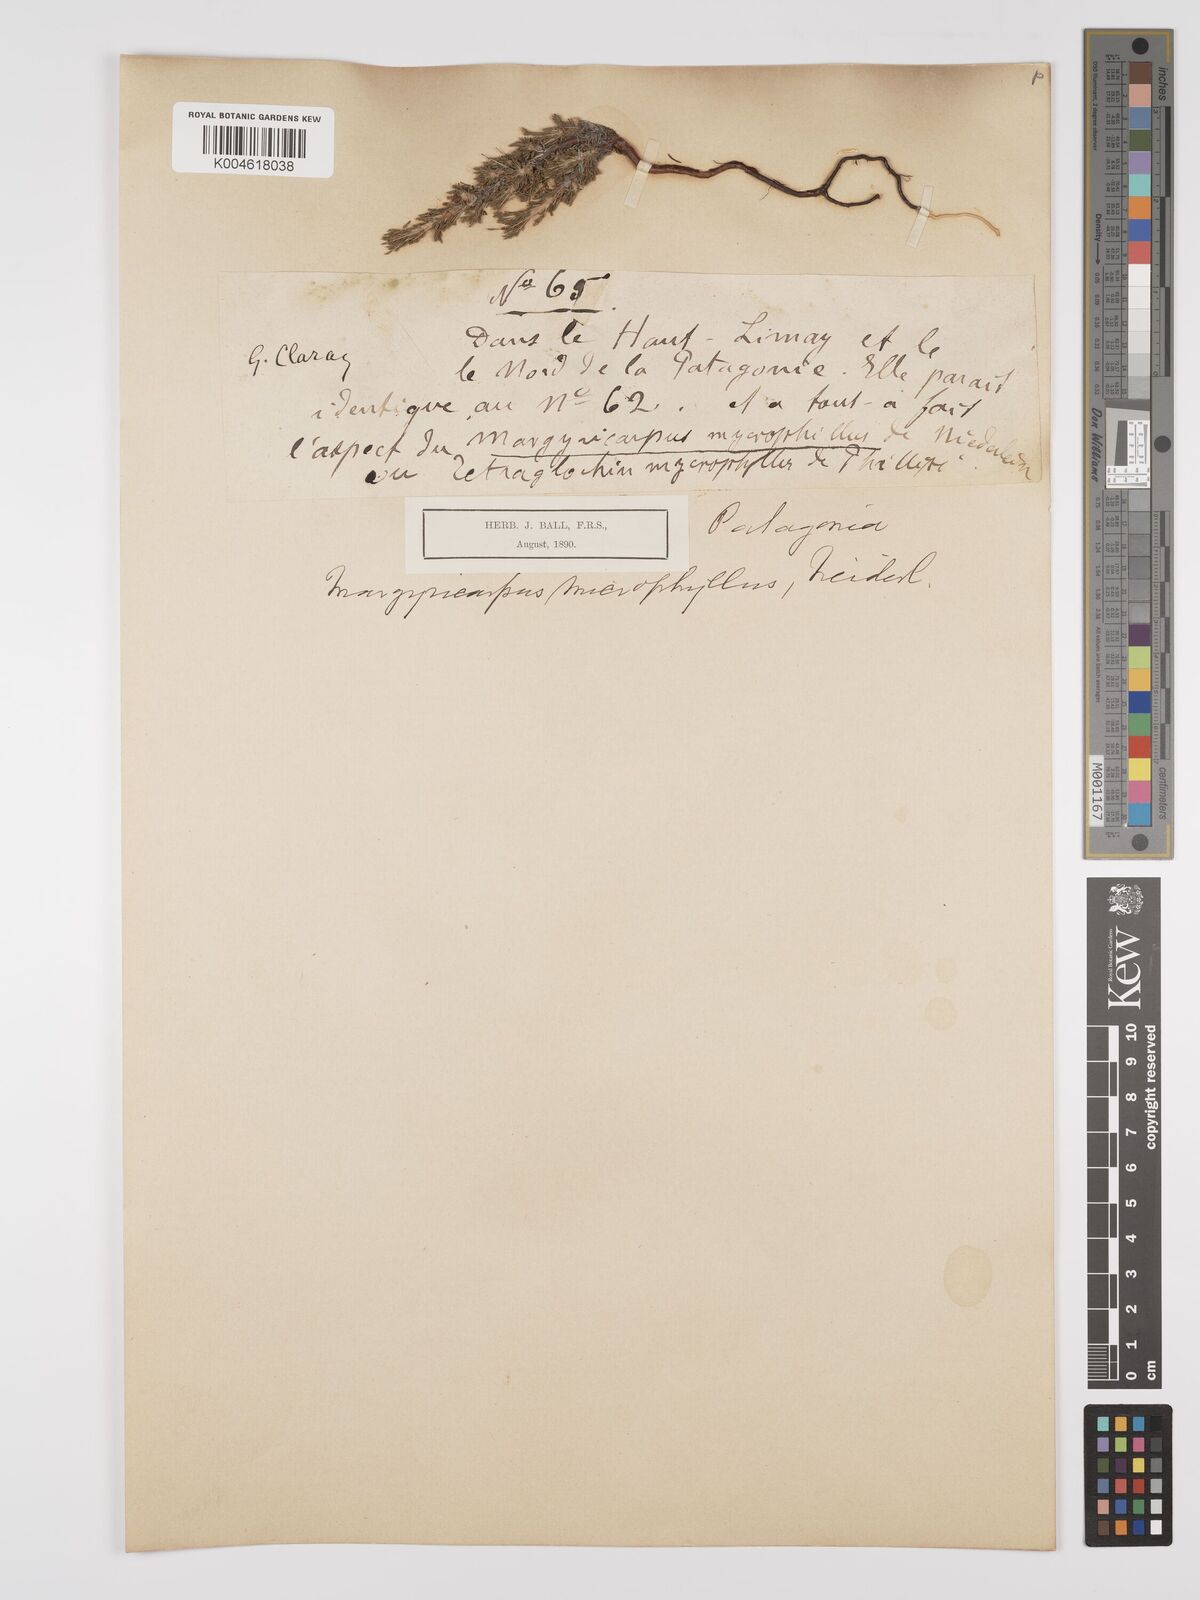 P
ROYAL BOTANIC GARDENS KEW
K004618038
No 65.
G. Claraz
Dans le Haut-Limay et le
le Nord de la Patagonie. Elle parait
identique au No 62. et a tout-à fait
l'aspect du Margyricarpus mycrophillus de Niederlein
ou Tetraglochin mycrophyller de Phillipi
HERB. J. BALL, F.R.S.,
August, 1890.
Patagonia
Margyricarpus microphyllus, Neiderl.
inches
centimeters
Density
Don Williams
M001167
Royal Botanic Gardens
Kew
copyright reserved
0 1 2 3 4 5 6 7 8 9 10
cm